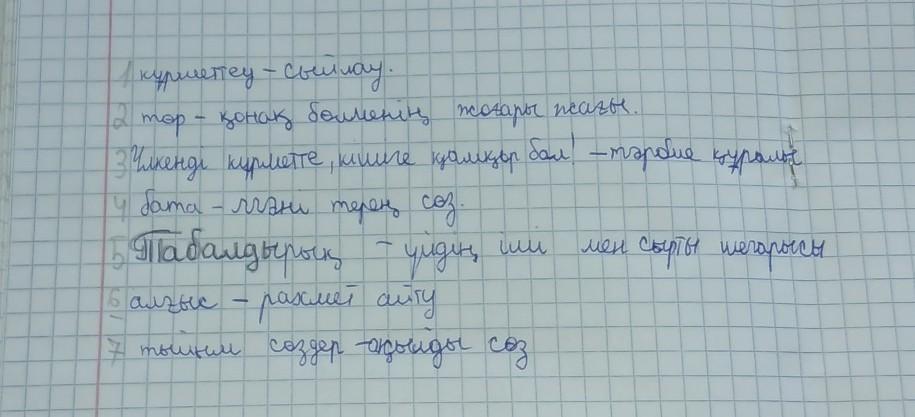 1 құрметтеу – сыйлау.
2 төр – қонақ бөлменің жоғары жағы.
3 Үлкенді құрметте, кішіге қамқор бол! – тәрбие құралы
4 бата – мәні терең сөз.
5 Табалдырық – үйдің іші мен сырты шегарасы
6 алғыс – рахмет айту
7 тыйым сөздер – ақылды сөз